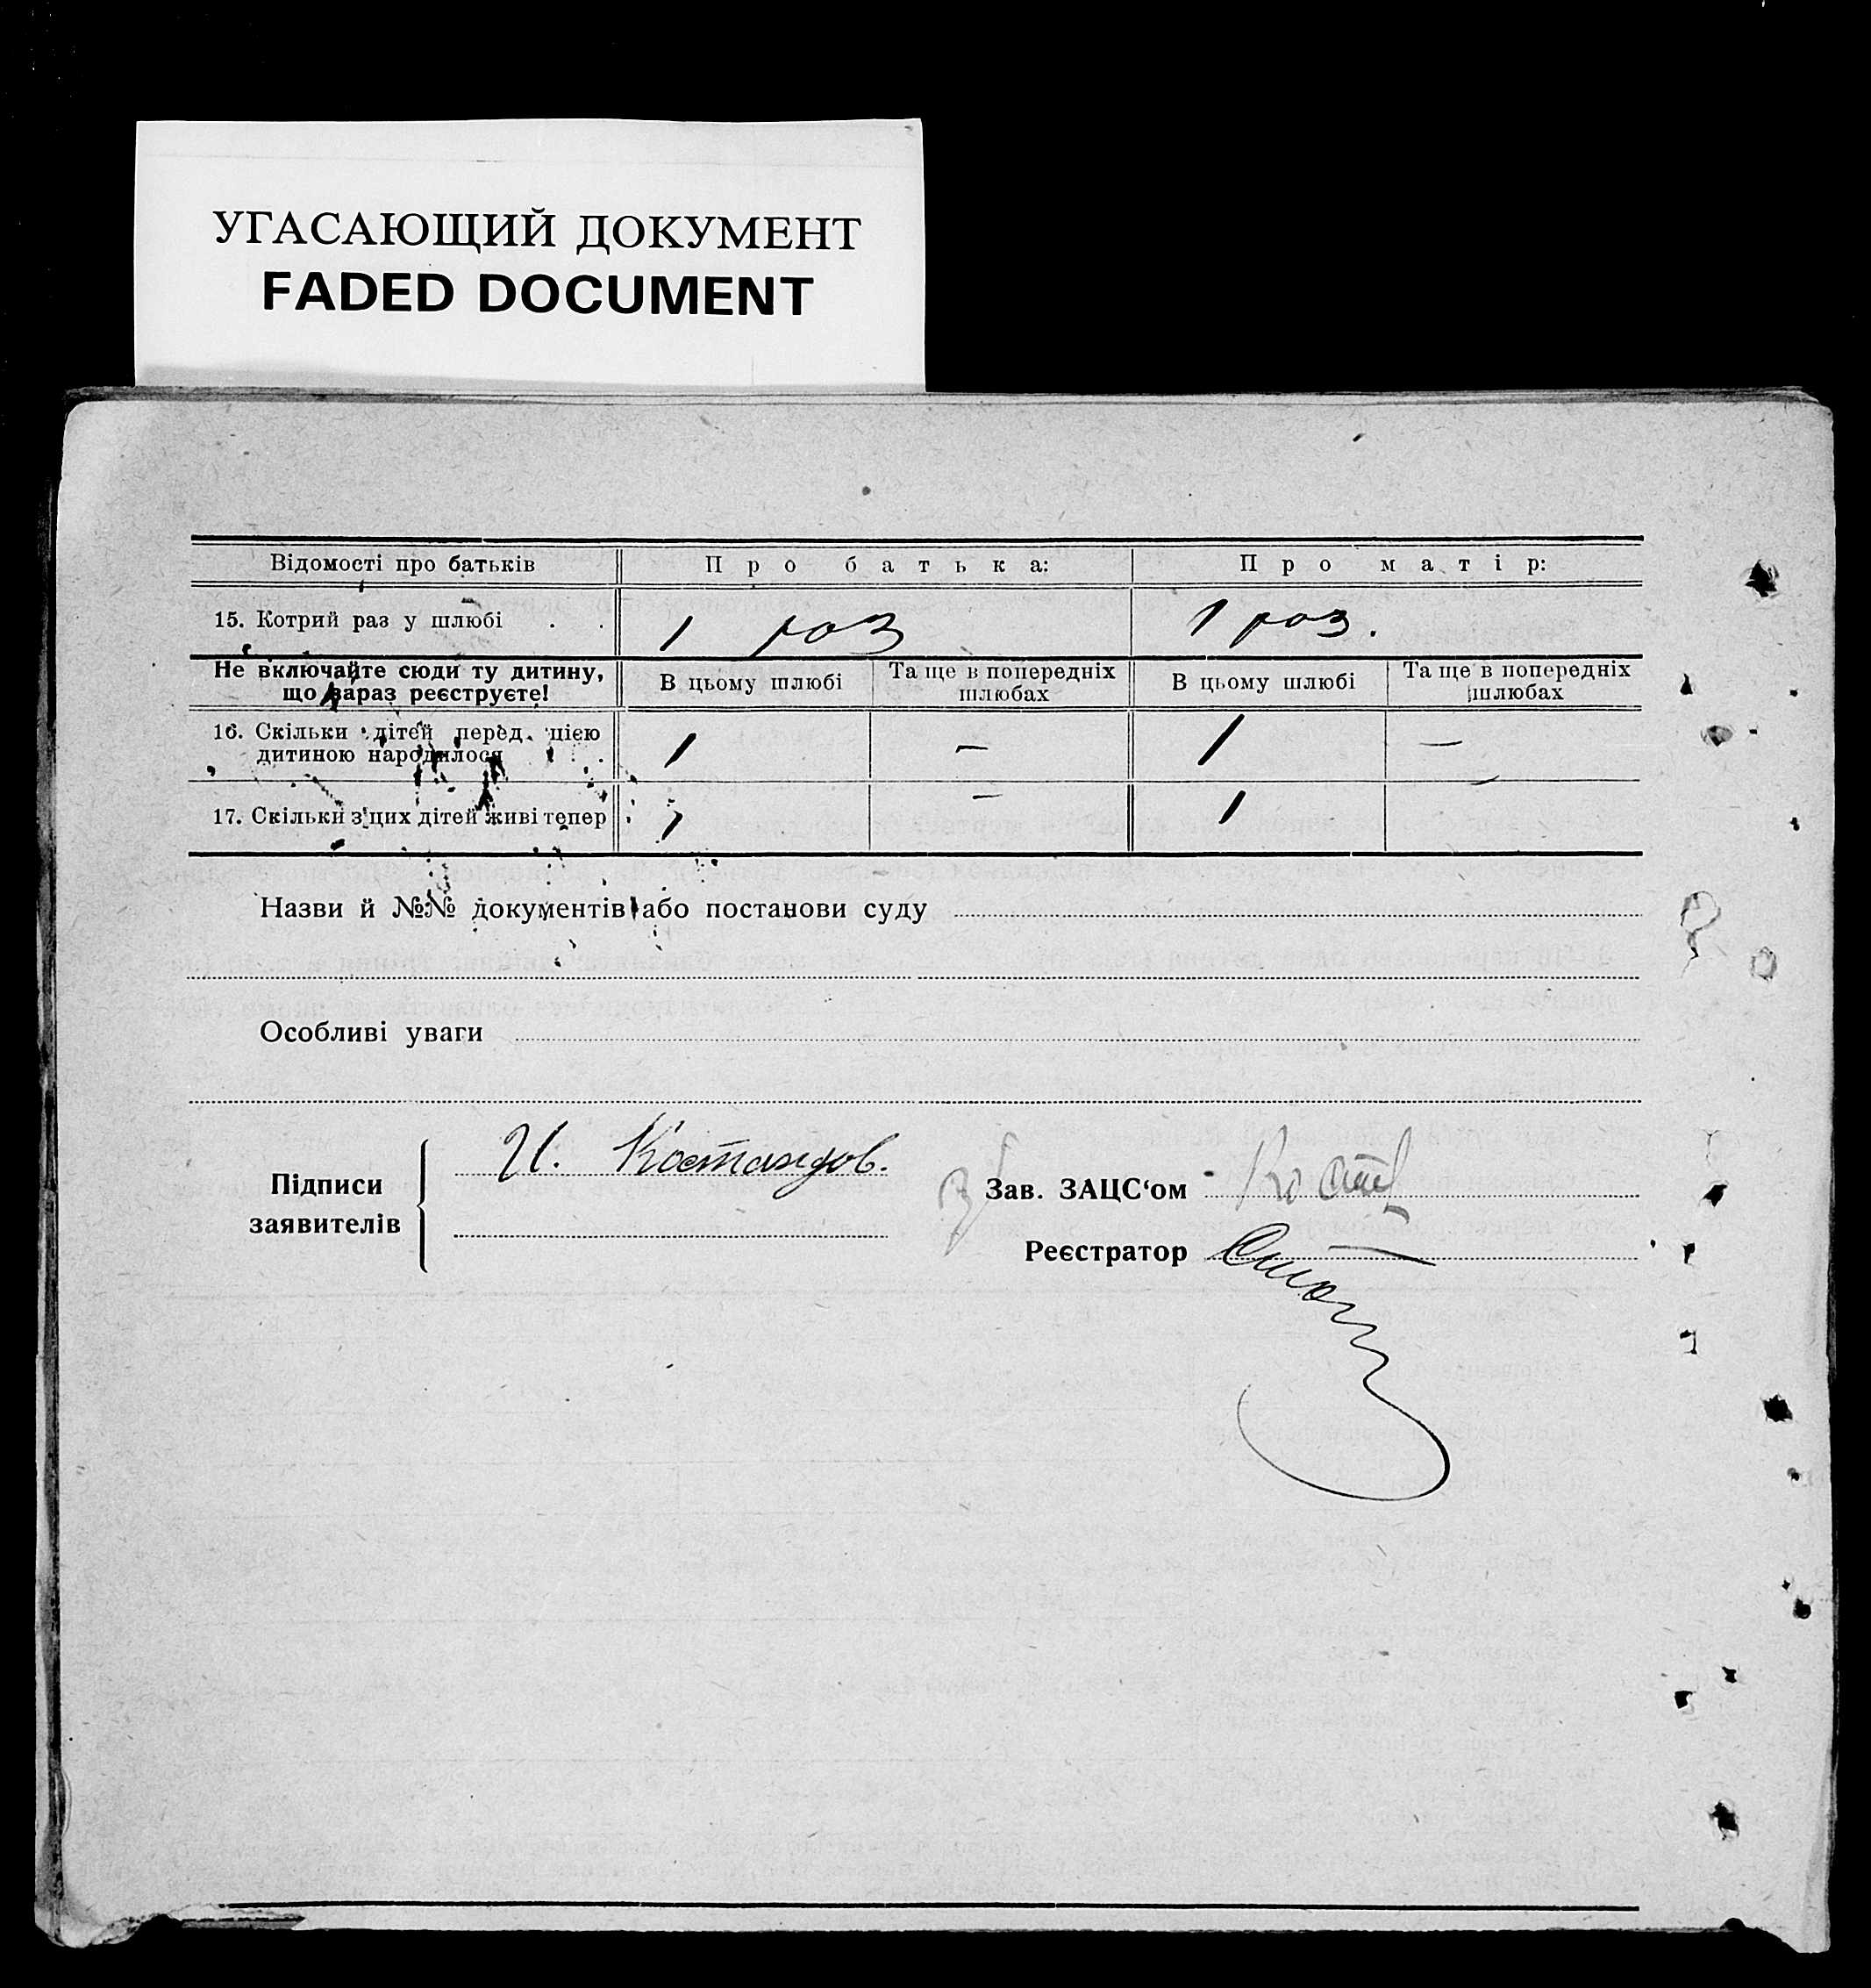 УГАСАЮЩИЙ ДОКУМЕНТ
FADED DOCUMENT
Відомості про батьків Про батька: Про матір:
15. Котрий раз у шлюбі . . 1 раз 1 раз.
Не включайте сюди ту дитину,
що зараз реєструєте!
В цьому шлюбі
Та ще в попередніх
шлюбах
В цьому шлюбі
Та ще в попередніх
шлюбах
16. Скільки дітей перед цією
дитиною народилося 1 — 1 —
17. Скільки з цих дітей живі тепер 1 — 1
Назви й №№ документів або постанови суду
Особливі уваги
Підписи
заявителів
И. Костандов.
Зав. ЗАЦС‘ом
Реєстратор